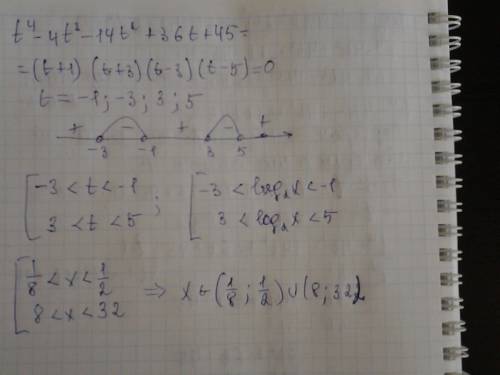 t⁴ - 4t³ - 14t² + 36t + 45 =
= (t+1) (t+3) (t-3) (t-5) = 0
t = -1; -3; 3; 5
+ - + - +
-3 -1 3 5
[ -3 < t < -1 ; [ -3 < log₂x < -1
3 < t < 5 3 < log₂x < 5
[ 1/8 < x < 1/2 ⇒ x ∈ (1/8 ; 1/2) ∪ (8 ; 32)
8 < x < 32